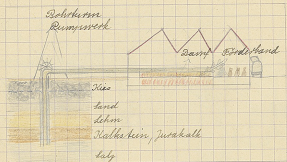 Bohrturm
Pumpwerk
Dampf Förderband
Kies
Sand
Lehm
Kalkstein, Jurakalk
Salz